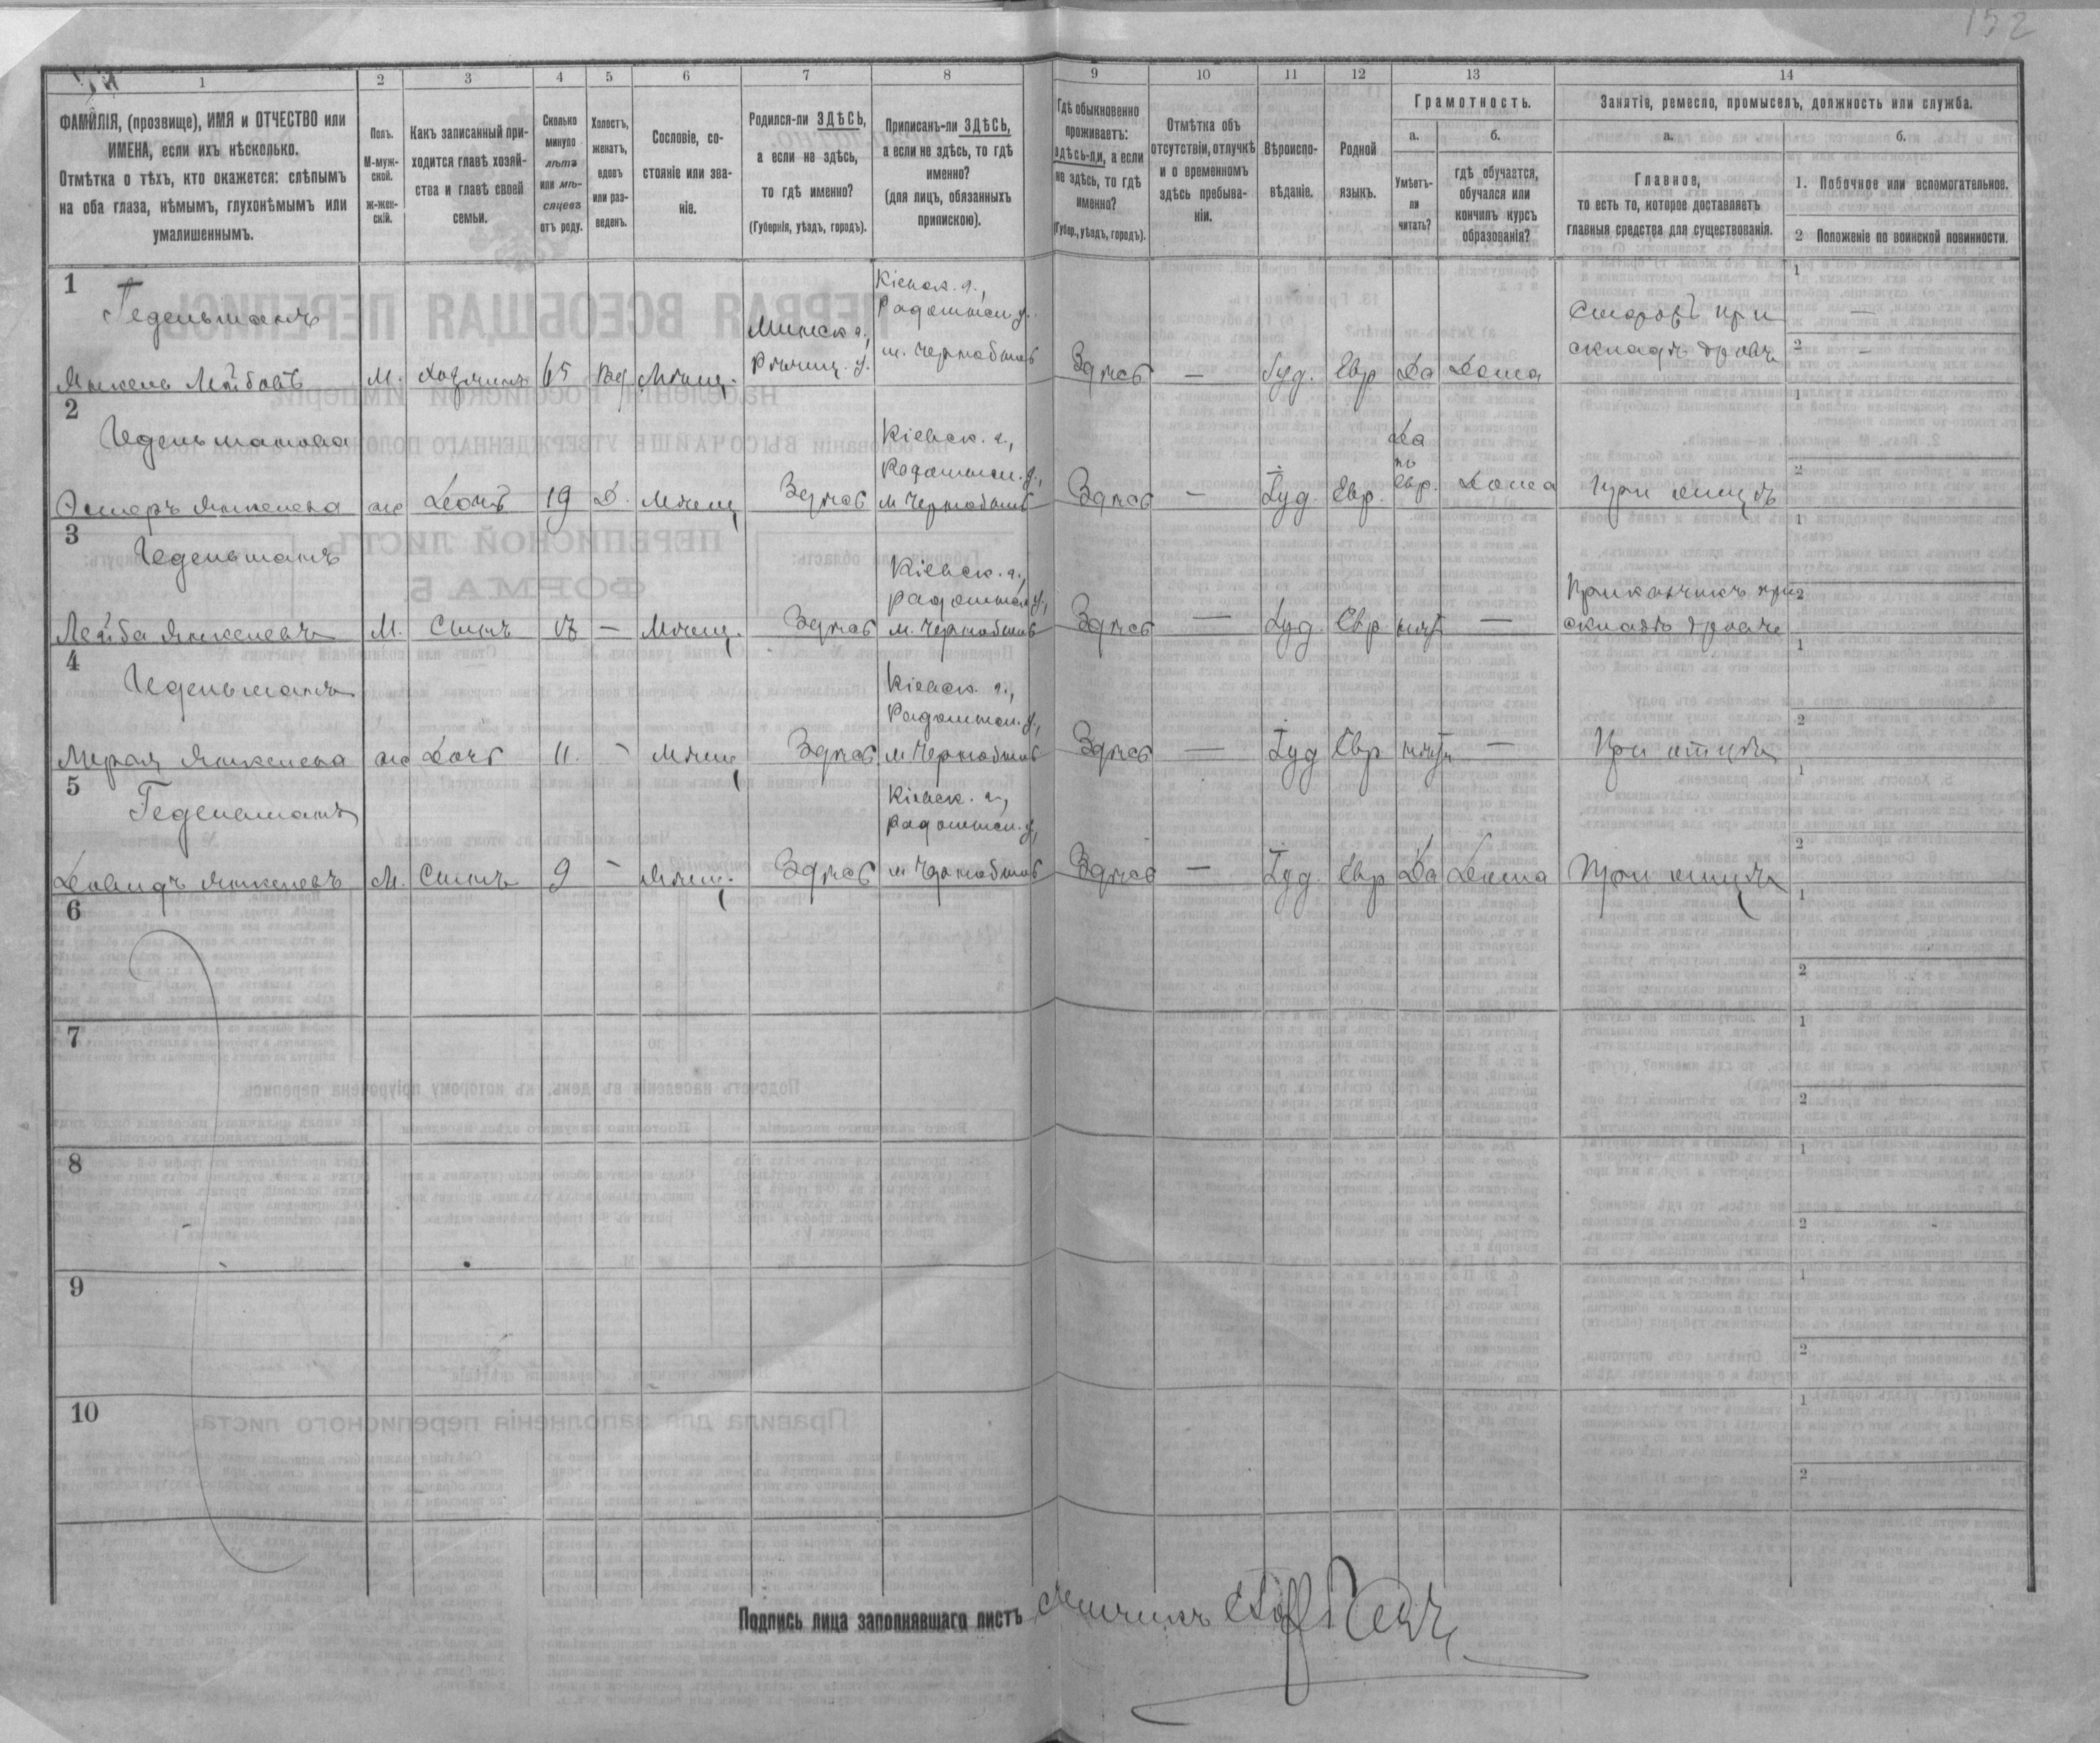 152
1
2
3
4
5
6
7
8
9
10
11
12
13
14
ФАМИЛІЯ, (прозвище), ИМЯ и ОТЧЕСТВО или
ИМЕНА, если ихъ нѣсколько.
Отмѣтка о тѣхъ, кто окажется: слѣпымъ
на оба глаза, нѣмымъ, глухонѣмымъ или
умалишеннымъ.
Полъ.
М-муж-
ской.
ж-жен-
скій.
Какъ записанный при-
ходится главѣ хозяй-
ства и главѣ своей
семьи.
Сколько
минуло
лѣтъ
или мѣ-
сяцевъ
отъ роду.
Холостъ,
женатъ,
вдовъ
или раз-
веденъ.
Сословіе, со-
стояніе или зва-
ніе.
Родился-ли ЗДѢСЬ,
а если не здѣсь,
то гдѣ именно?
(Губернія, уѣздъ, городъ).
Приписанъ-ли ЗДѢСЬ,
а если не здѣсь, то гдѣ
именно?
(для лицъ, обязанныхъ
припискою).
Гдѣ обыкновенно
проживаетъ:
здѣсь-ли, а если
не здѣсь, то гдѣ
именно?
(Губер., уѣздъ, городъ).
Отмѣтка объ
отсутствіи, отлучкѣ
и о временномъ
здѣсь пребыва-
ніи.
Вѣроиспо-
вѣданіе.
Родной
языкъ.
Грамотность.
а.
б.
Умѣетъ-
ли
читать?
гдѣ обучается,
обучался или
кончилъ курсъ
образованія?
Занятіе, ремесло, промыселъ, должность или служба.
а.
б.
Главное,
то есть то, которое доставляетъ
главныя средства для существованія.
1. Побочное или вспомогательное.
2 Положеніе по воинской повинности.
1
Гедельманъ
Кіевск. г.,
Радомысл. у.
Минск. г.,
Рѣчиц. у.
м. Чернобыль
Сторожъ при
складѣ дровъ
1 —
2 —
Янкель Лейбовъ М. Хозяинъ 65 Вд Мѣщ. Здѣсь — Іуд. Евр Да Дома
2
Гедельманова
Кіевск. г.,
Радомысл. у.,
Да
по
Эстеръ Янкелева ж Дочь 19 Д. Мѣщ Здѣсь м Чернобыль Здѣсь — Іуд. Евр. Евр. Дома При отцѣ
1
2
3
Гедельманъ
Кіевск. г.,
Радомысл. у,
Приказчикъ при
складѣ дровъ
1
2
Лейба Янкелевъ М. Сынъ — Мѣщ. Здѣсь м. Чернобыль Здѣсь — Іуд. Евр нѣтъ —
4
Гедельманъ
Кіевск. г.,
Радомысл. у.,
Янкелева ж Дочь 11. - Мѣщ Здѣсь м Чернобыль Здѣсь — Іуд Евр нѣтъ — При отцѣ
1
2
5
Гедельманъ
Кіевск. г.,
Радомысл. у,
Довидъ Янкелевъ М. Сынъ 9 - Мѣщ. Здѣсь м Чернобыль Здѣсь — Іуд. Евр Да Дома При отцѣ
1
2
6
1
2
7
1
2
8
1
2
9
1
2
10
1
2
Подпись лица заполнявшаго листъ